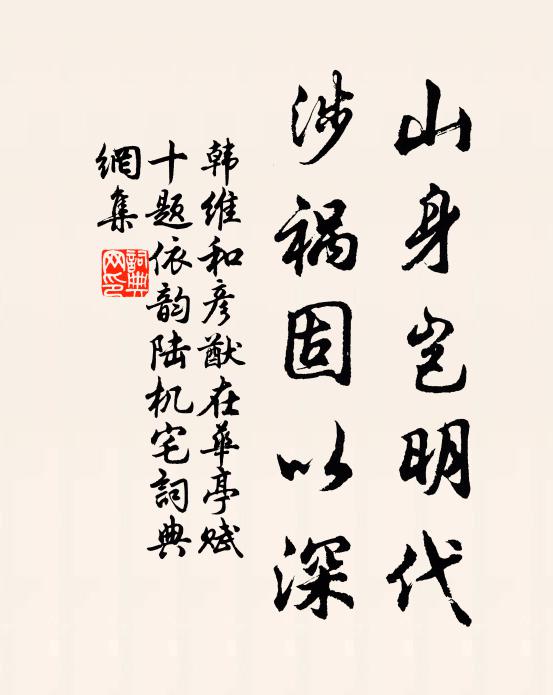 山身岂明代
涉祸固以深
韩维和彦猷在华亭赋
十题依韵陆机宅詞典
網集
詞典网印